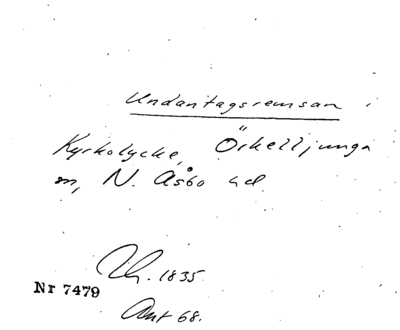 Undantagsremsan i
Kyrkolycke, Örkelljunga
sn, N. Åsbo hd.
Lh. 1835
Nr 7479
Ant 68.